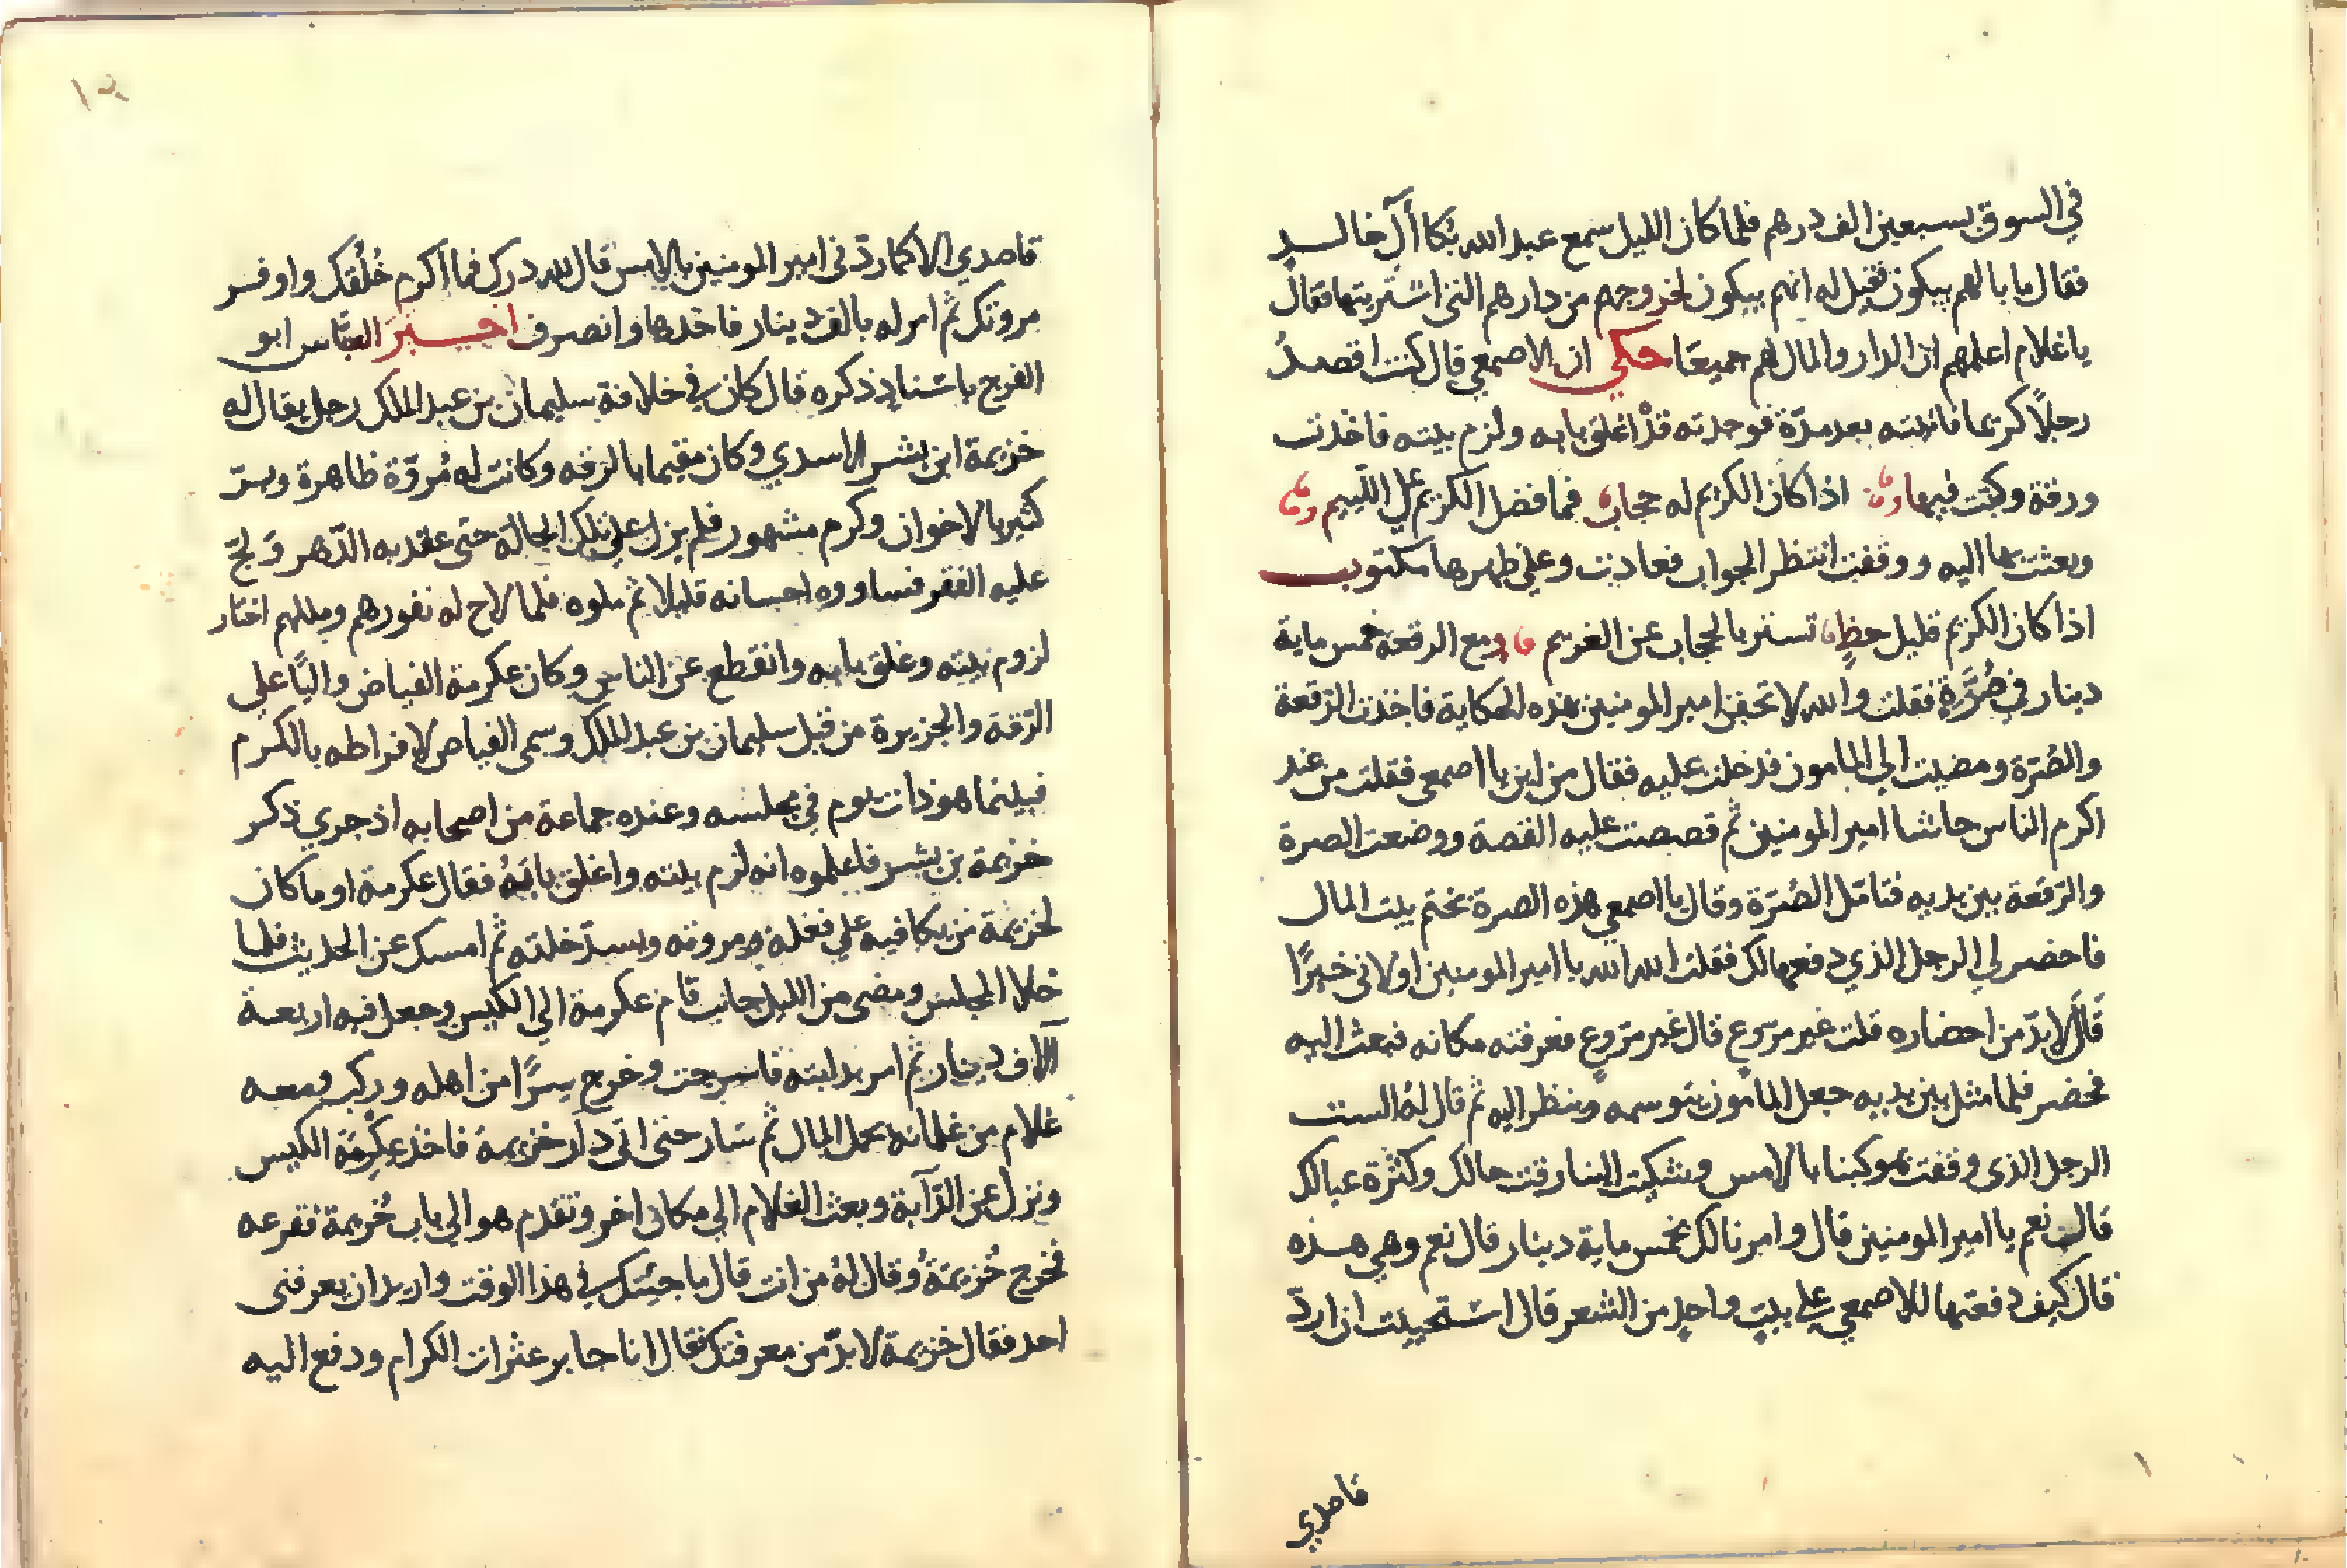 في السوق بسبعين الف درهم فلما كان الليل سمع عبد الله بكا أل خالد
فقال ما بالهم يبكون فقيل له انهم يبكون لخروجهم من دارهم التي اشتريتها فقال
يا غلام اعلمهم ان الدار والمال لهم جميعًا حكي ان الاصمعي قال كنت اقصدُ
رجلًا كريما فاتيته بعد مدّة فوجدته قدْ اغلق بابه ولزم بيته فاخذت
ورقة وكتبت فيها اذا كان الكريم له حجاب فما فضل الكريم علي اللّييم
وبعثت بها اليه ووقفت انتظر الجواب فعادت وعلي ظهرها مكتوب
اذا كان الكريم قليل حظٍ تستر بالحجاب عن الغريم ومع الرقعة خمس ماية
دينار في صُرَّةٍ فقلت والله لاتحفن امير المومنين بهذه الحكاية فاخذت الرقعة
والصُرّة ومضيت الي المامون فدخلت عليه فقال من اين يا اصمعي فقلت من عند
اكرم الناس حاشا امير المومنين ثم قصصت عليه القصة ووضعت الصرة
والرّقعة بين يديه فتامّل الصُرّة وقال يا اصمعي هذه الصرة بختم بيت المال
فاحضر لي الرجل الذي دفعها لك فقلت الله الله يا امير المومنين اولاني خيرًا
قال لابدّ من احضاره قلت غير مرّوع قال غير مرّوعٍ فعرفته مكانه فبعث اليه
فحضر فلما مثل بين يديه جعل المأمون يتوسمه وينظر اليه ثم قال لهُ الست
الرجل الذي وقفت بموكبنا بالامس وشكيت الينا رقت حالك وكثرة عيالك
قال نعم يا امير المومنين قال وامرنا لك بخمس ماية دينار قال نعم وهي هذه
قال كيف دفعتها للاصمعي علي بيتٍ واحدٍ من الشعر قال استحييت ان اردّ
قاصدي
١٢
قاصدي الا كما ردّني امير المومنين بالامس قال لله درك فما اكرم خُلُقك واوفر
مروتك ثم امر له بالف دينار فاخذها وانصرف اخبر العبّاس ابو
الفرج باسناد ذكره قال كان في خلافة سليمان بن عبد الملك رجل يقال له
خزيمة ابن بشر الاسدي وكان مقيما بالرقه وكانت له مُروّة ظاهرة وبرّ
كثير بالاخوان وكرم مشهور فلم يزل علي تلك الحالة حتى عقد به الدّهر ولجّ
عليه الفقر فنساووه احسانه قليلا ثم ملوه فلما لاح له نفورهم ومللهم اختار
لزوم بيته وغلق بابه وانقطع عن الناس وكان عكرمة الفياض واليًا علي
الرّقة والجزيرة من قبل سليمان بن عبد الملك وسمى الفياض لافراطه بالكرم
فبينما هو ذات يوم في مجلسه وعنده جماعة من اصحابه اذ جري ذكر
خزيمة بن بشر فاعلموه انه لزم بيته واغلق بابهُ فقال عكرمة او ما كان
لخزيمة من يكافيه علي فعله ومروته ويسدّ خلته ثم امسك عن الحديث فلما
خلا المجلس ومضى من الليل جانب قام عكرمة الي الكيس وجعل فيه اربعة
آلاف دينار ثم امر بدابته فاسرجت وخرج سرًّا من اهله وركب ومعه
غلام من غلمانه يحمل المال ثم سار حتى اتى دار خزيمة فاخذ عِكْرِمَة الكيس
ونزل عن الدّآبة وبعث الغلام الي مكان اخر وتقدم هو الي باب خُزيمة فقرعه
فخرج خُزيمةُ وقال لهُ من انت قال ما جيئتك في هذا الوقت واريد ان يعرفنى
احد فقال خزيمة لابدّ من معرفتك فقال انا جابر عثرات الكرام ودفع اليه